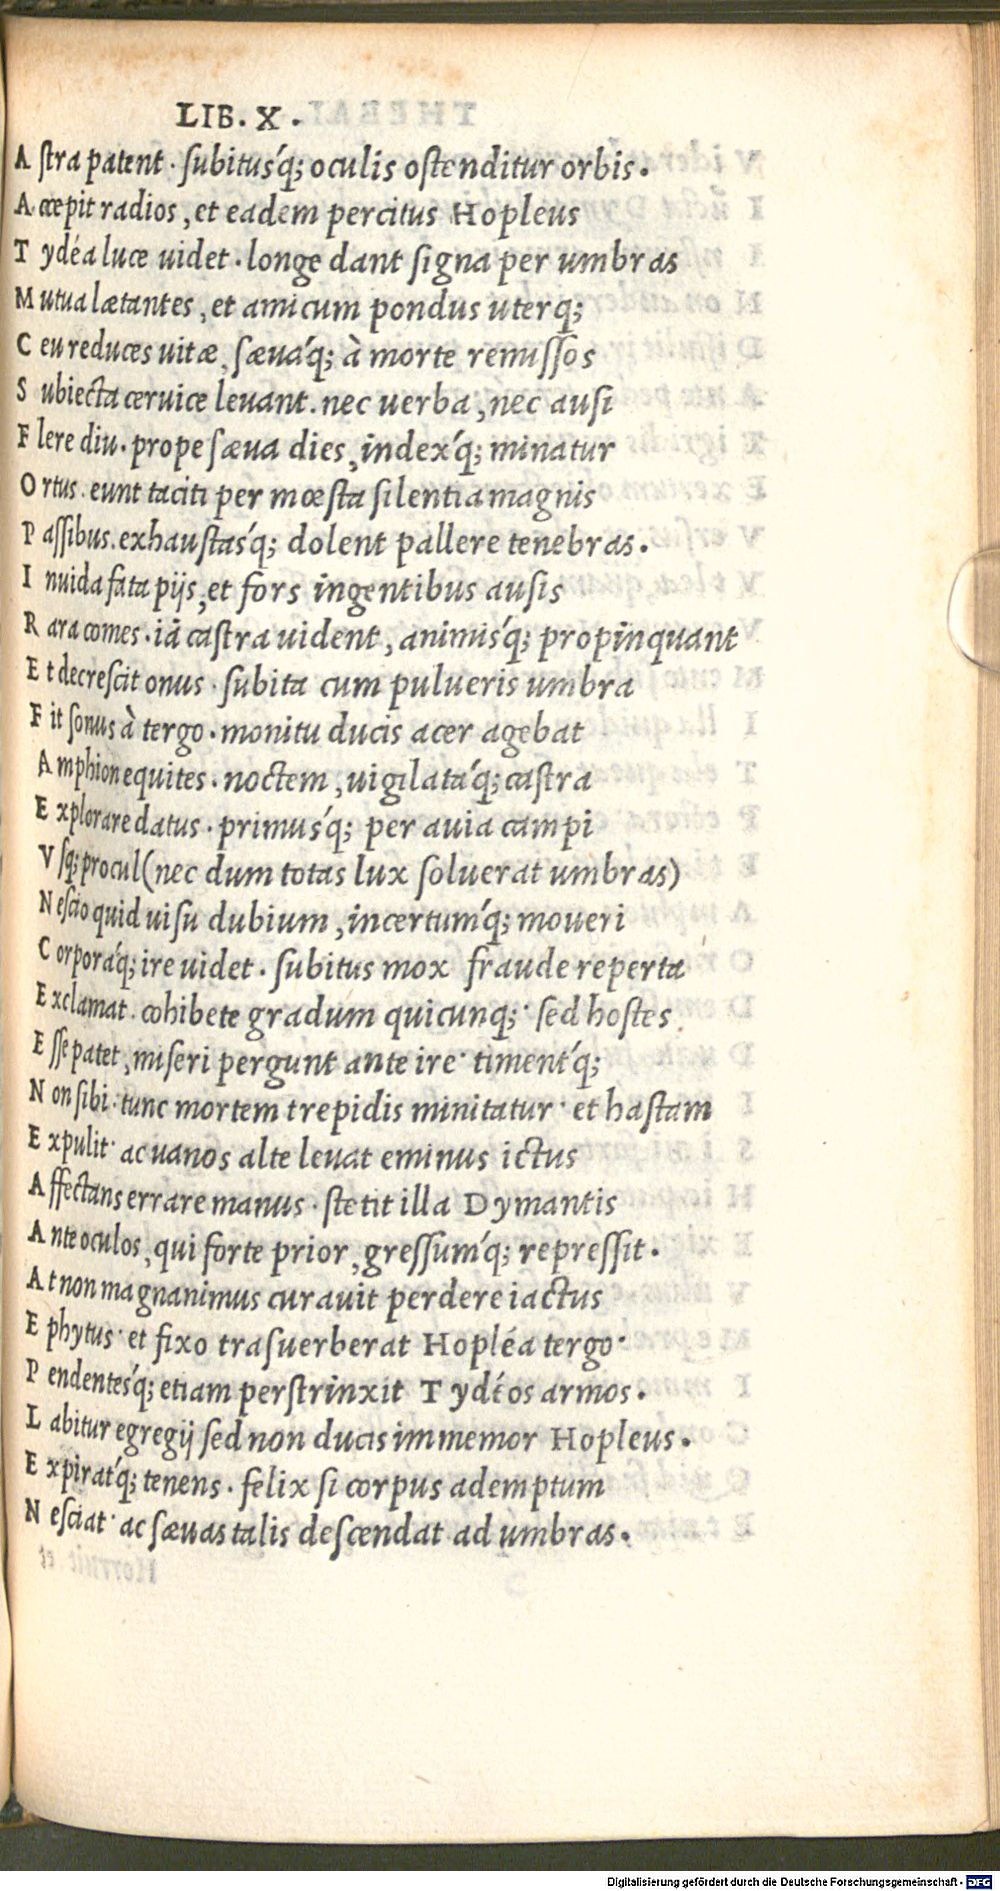 LIB. X.
A ſtra patent. ſubitusq́; oculis oſtenditur orbis.
A ccepit radios, et eadem percitus Hopleus
T ydéa luce uidet. longe dant ſigna per umbras
M utua lætantes, et amicum pondus uterq;
C eu reduces uitæ, ſæuaq́; à morte remiſſos
S ubiecta ceruice leuant. nec uerba, nec auſi
F lere diu. prope ſæua dies, indexq́; minatur
O rtus. eunt taciti per mœsta ſilentia magnis
P aſſibus. exhauſtasq́; dolent pallere tenebras.
I nuida fata pijs, et fors ingentibus auſis
R ara comes. iã caſtra uident, animisq́; propinquant
E t decreſcit onus. ſubita cum pulueris umbra
F it ſonus à tergo. monitu ducis acer agebat
A mphion equites. noctem, uigilataq́; caſtra
E xplorare datus. primusq́; per auia campi
V ſq; procul (nec dum totas lux ſoluerat umbras)
N eſcio quid uiſu dubium, incertumq́; moueri
C orporaq́; ire uidet. ſubitus mox fraude reperta
E xclamat. cohibete gradum quicunq;· ſed hoſtes
E ſſe patet, miſeri pergunt ante ire· timentq́;
N on ſibi. tunc mortem trepidis minitatur· et haſtam
E xpulit· ac uanos alte leuat eminus ictus
A ffectans errare manus. ſtetit illa Dymantis
A nte oculos, qui forte prior, greſſumq́; repreſſit.
A t non magnanimus curauit perdere iactus
E phytus· et fixo traſuerberat Hopléa tergo·
P endentesq́; etiam perſtrinxit Tydéos armos.
L abitur egregij ſed non ducis immemor Hopleus.
E xpiratq́; tenens. felix ſi corpus ademptum
N eſciat· ac ſæuas talis deſcendat ad umbras.
Digitalisierung gefördert durch die Deutsche Forschungsgemeinschaft - DFG